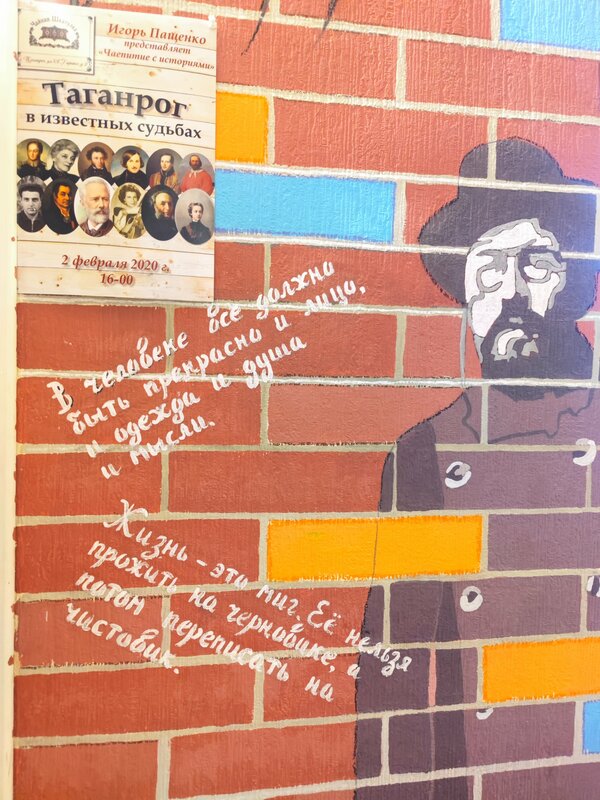 Чайная Шкатулка
Игорь Пащенко
представляет
«Чаепитие с историями»
Таганрог
в известных судьбах
2 февраля 2020 г.
16-00
В человеке всё должно
быть прекрасно и лицо,
и одежда и душа
и мысли.
Жизнь – эта миг. Её нельзя
прожить на черновике, а
потом переписать на
чистовик.